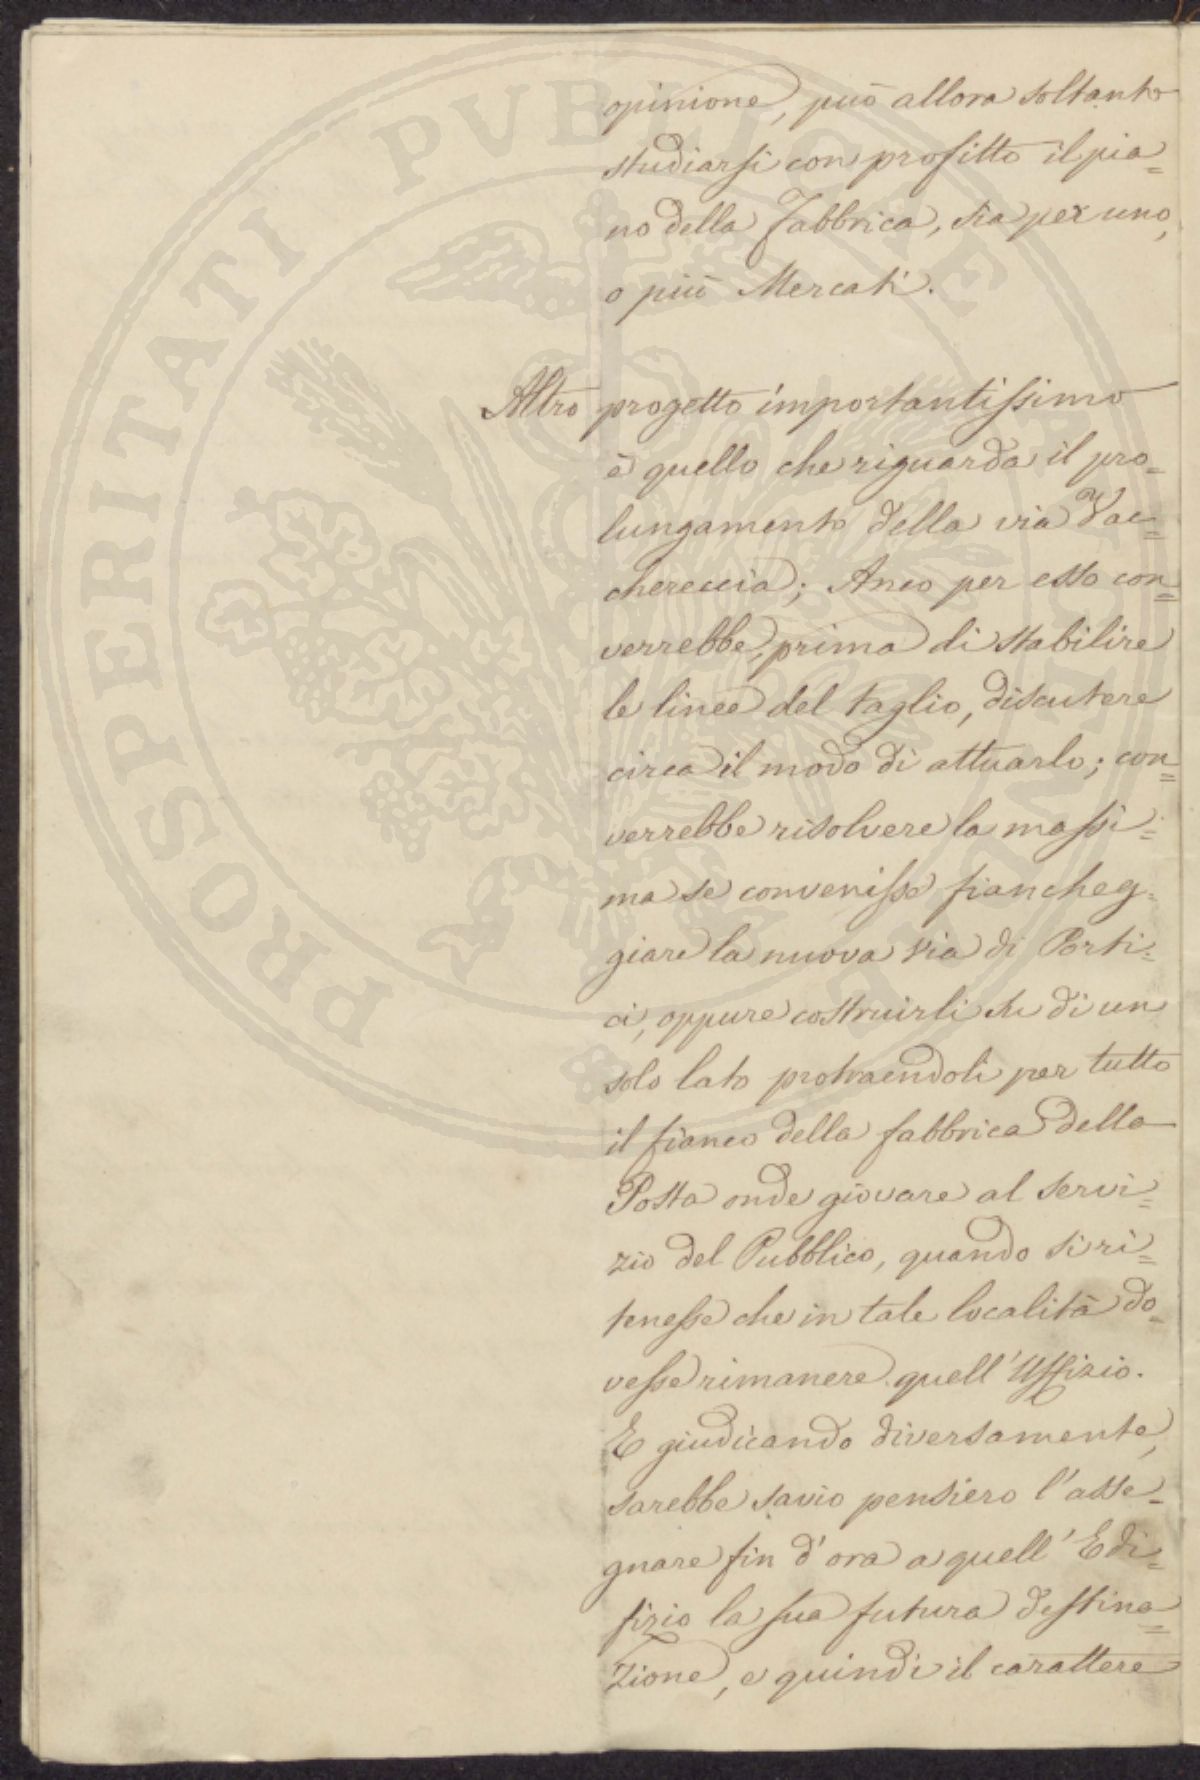 opinione, può allora soltanto
studiarsi con profitto il pia=
no della Fabbrica, sia per uno,
o più Mercati.
Altro progetto importantissimo
è quello che riguarda il pro=
lungamento della via Vac=
chereccia; Anco per esso con=
verrebbe, prima di stabilire
le linee del taglio, discutere
circa il modo di attuarlo; con=
verrebbe risolvere la massi=
ma se convenisse fiancheg=
giare la nuova via di Porti=
ci, oppure costruirli su di un
solo lato protraendoli per tutto
il fianco della fabbrica della
Posta onde giovare al servi=
zio del Pubblico, quando si ri=
tenesse che in tale località do=
vesse rimanere quell'Uffizio.
E giudicando diversamente,
sarebbe savio pensiero l'asse=
gnare fin d'ora a quell'Edi=
fizio la sua futura destina=
zione, e quindi il carattere
PROSPERITATI PVBLICAE